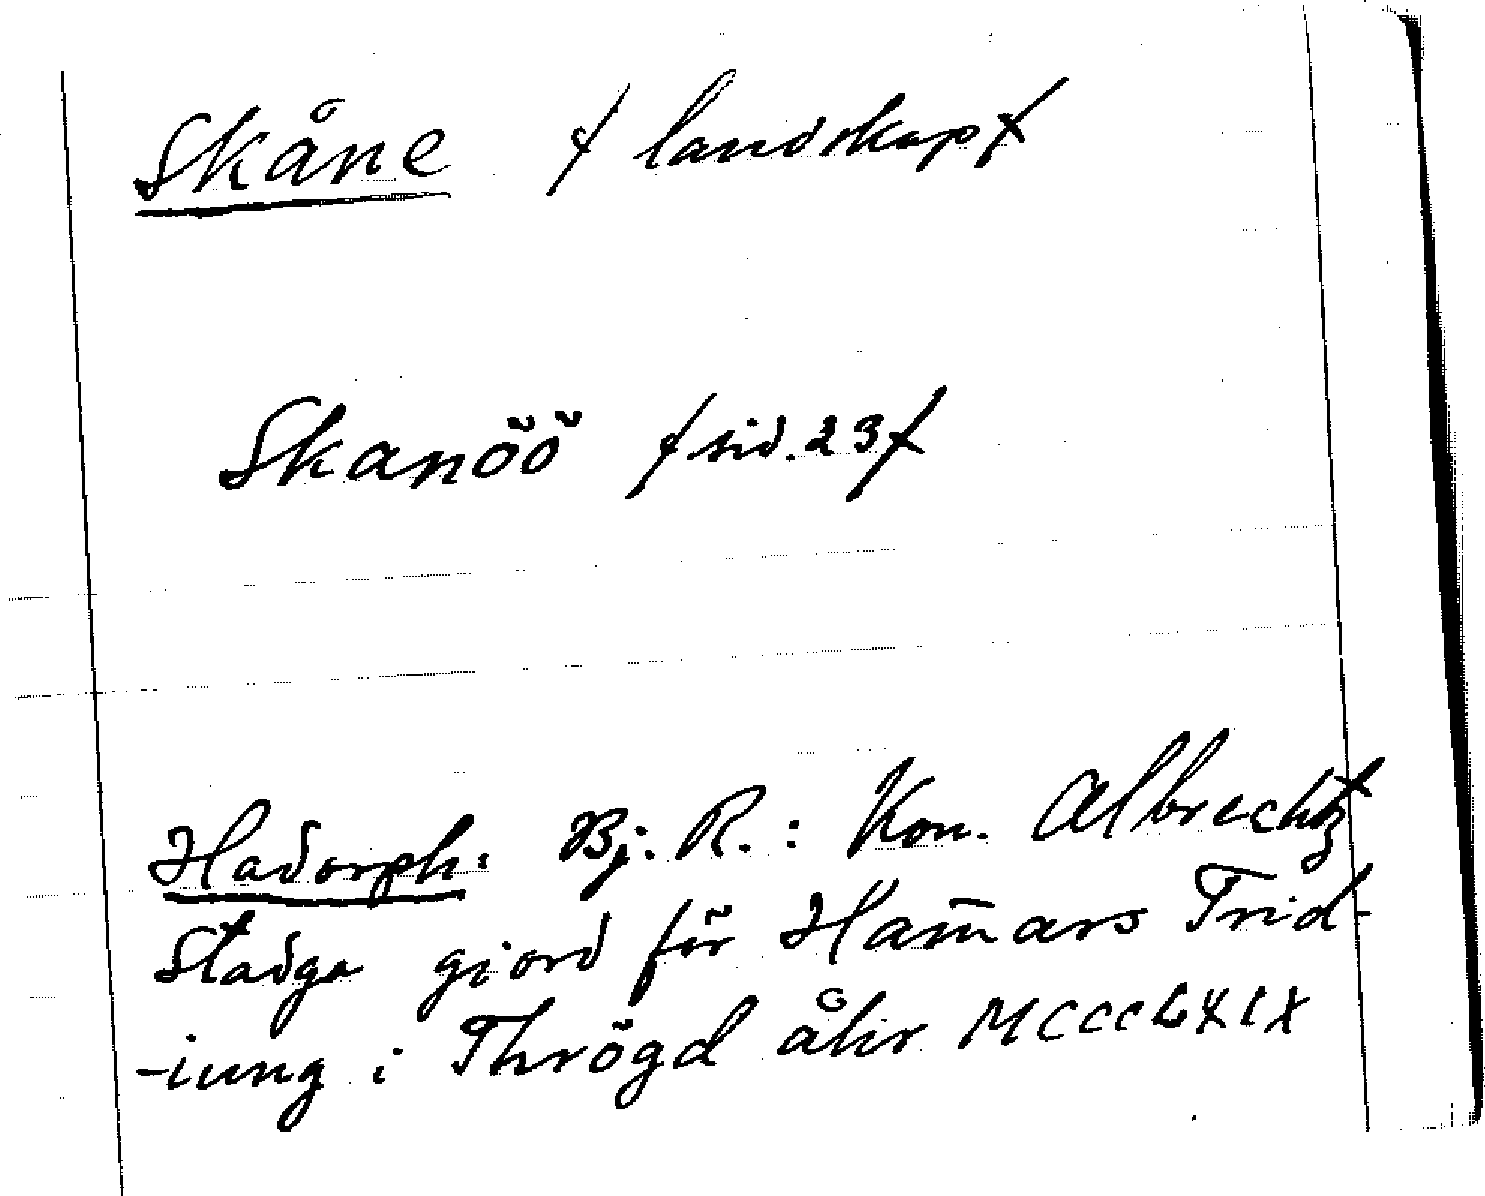 Skåne / landskap /
Skanöö / sid. 23 /
Hadorph: Bj. R.: Kon. Albrechtz
Stadga giord för Ham̄ars Trid-
-iung i Thrögd åhr MCCCLXIX